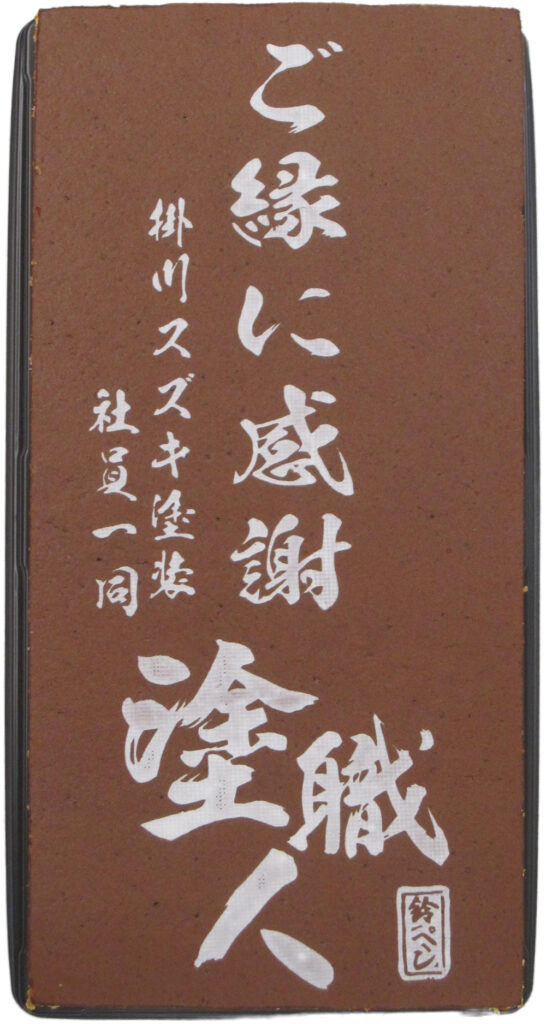 ご縁に感謝
掛川スズキ塗装
社員一同
塗職人
鈴ペン